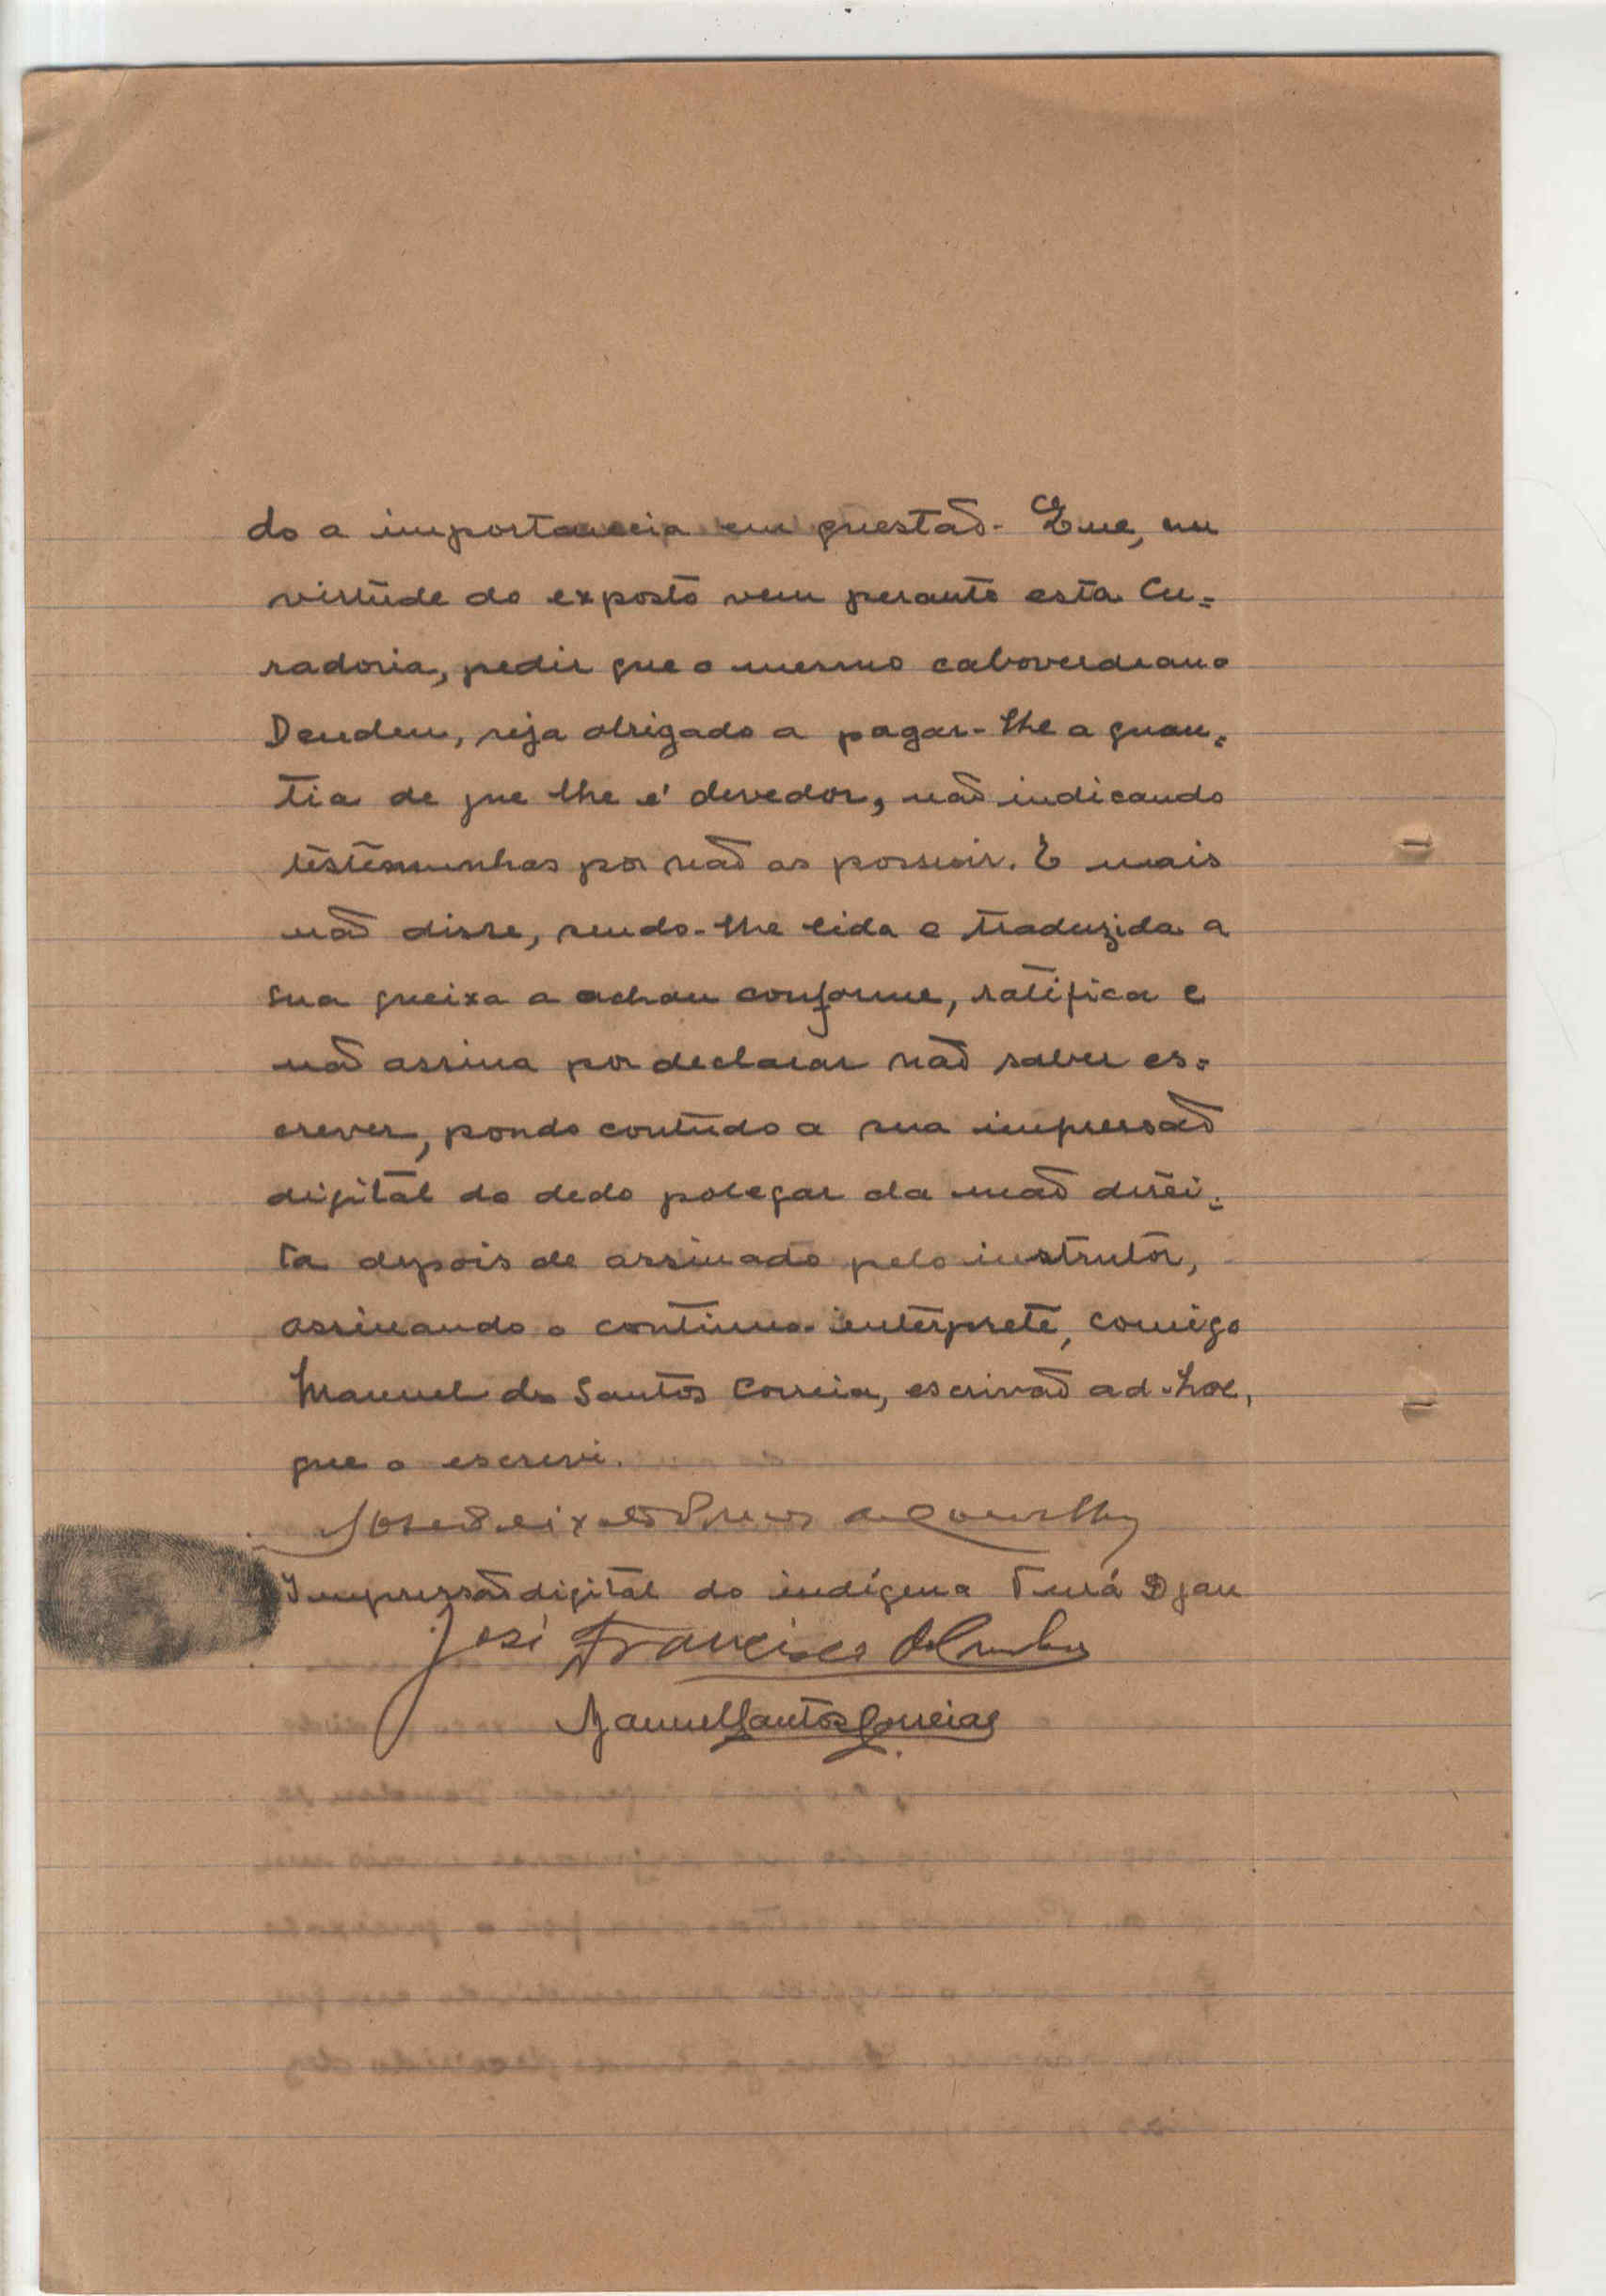 do a importancia em questão. Que, em
virtude do exposto vem perante esta Cu=
radoria, pedir que o mesmo caboverdeano
Dendem, seja obrigado a pagar-lhe a quan=
tia de que lhe é devedor, não indicando
testemunhas por não as possuir. E mais
não disse, sendo-lhe lida e traduzida a
sua queixa a achou conforme, ratifica e
não assina por declarar não saber es=
crever, pondo contudo a sua impressão
digital do dedo polegar da mão direi=
ta depois de assinado pelo instrutor,
assinando o continuo-interprete, comigo
Manuel dos Santos Correia, escrivão ad-hoc,
que o escrevi.
Impressão digital do indígena Djau
José Francisco
Manuel Santos Correia